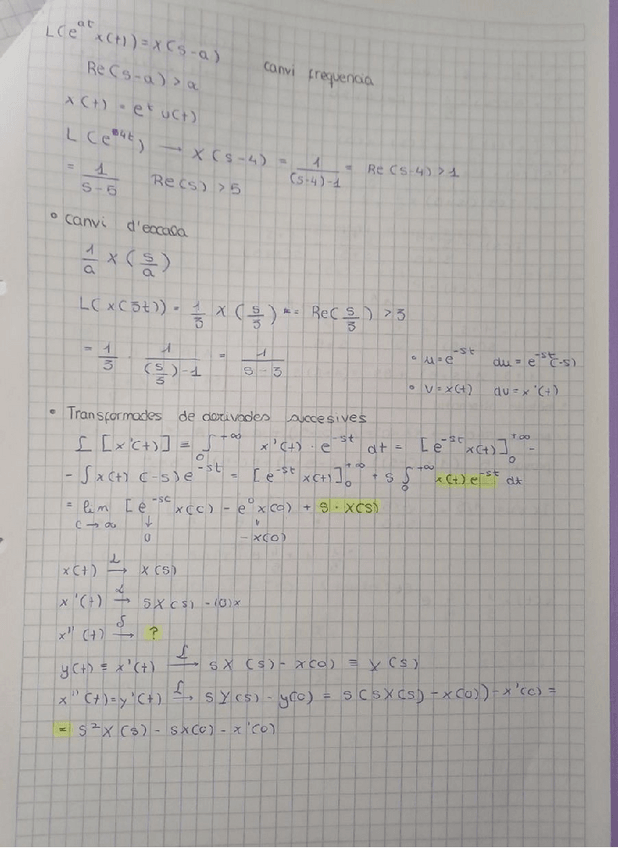 L(e^{at} x(t)) = x(s-a)
canvi frequencia
Re(s-a) > a
x(t) = e^t u(t)
L(e^{4t}) → X(s-4) = 1/((s-4)-1) = Re(s-4) > 1
= 1/(s-5) Re(s) > 5
• canvi d'escala
1/a X(s/a)
L(x(3t)) = 1/3 X(s/3) = Re(s/3) > 3
= 1/3 · 1/((s/3)-1) = 1/(s-3)
• u = e^{-st} du = e^{-st}(-s)
• v = x(t) dv = x'(t)
• Transformades de derivades succesives
L[x'(t)] = ∫_0^{+∞} x'(t) · e^{-st} dt = [e^{-st} x(t)]_0^{+∞} -
- ∫ x(t) (-s)e^{-st} = [e^{-st} x(t)]_0^{+∞} + s ∫_0^{+∞} x(t) e^{-st} dt
= lim [e^{-sc} x(c) - e^0 x(0) + s · X(s)
c → ∞ ↓ 0 ↓ -x(0)
x(t) →^L X(s)
x'(t) →^L sX(s) - (0)x
x''(t) →^L ?
y(t) = x'(t) →^L sX(s) - x(0) = Y(s)
x''(t) = y'(t) →^L sY(s) - y(0) = s(sX(s) - x(0)) - x'(0) =
= s²X(s) - sx(0) - x'(0)